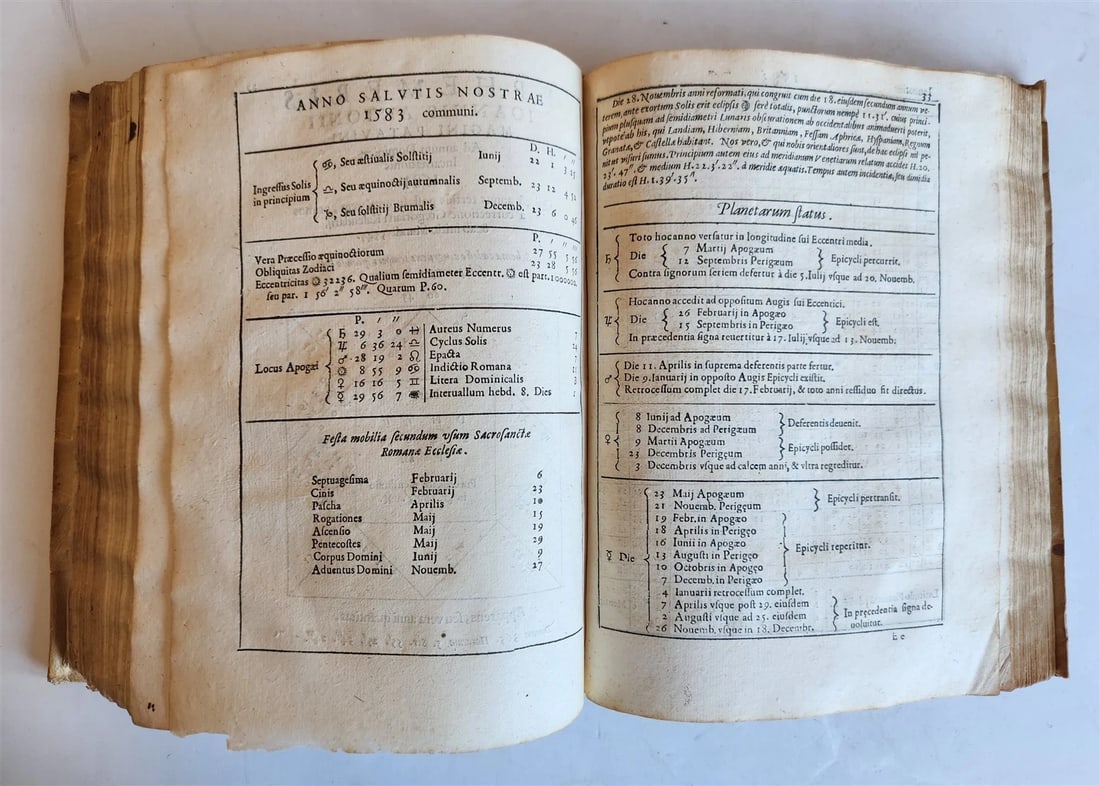 ANNO SALVTIS NOSTRAE
1583 communi.
D. H. ′ ″
Ingressus Solis in principium
♋, Seu æstiualis Solstitij Iunij 22 1 3 15
♎, Seu æquinoctij autumnalis Septemb. 23 12 4 52
♑, Seu solstitij Brumalis Decemb. 23 6 0 46
P. ′ ″
Vera Præcessio æquinoctiorum 27 55 5
Obliquitas Zodiaci 23 28 5
Eccentricitas ☼ 32236. Qualium semidiameter Eccentr. ☼ est part. 1000000.
seu par. 1 56′ 2″ 58‴. Quarum P.60.
P. ′ ″
Locus Apogæi
♄ 29 3 0 ♐ Aureus Numerus 7
♃ 6 36 24 ♎ Cyclus Solis 24
♂ 28 19 2 ♌ Epacta 7
☼ 8 55 9 ♋ Indictio Romana 11
♀ 16 16 5 ♊ Litera Dominicalis 3
☿ 29 56 7 Interuallum hebd. 8. Dies 1
Festa mobilia secundum vsum Sacrosanctæ
Romanæ Ecclesiæ.
Septuagesima Februarij 6
Cinis Februarij 23
Pascha Aprilis 10
Rogationes Maij 15
Ascensio Maij 19
Pentecostes Maij 29
Corpus Domini Iunij 9
Aduentus Domini Nouemb. 27
33
Die 28. Nouembris anni reformati, qui congruit cum die 18. eiusdem secundum annum ve-
terem, ante exortum Solis erit eclipsis ☼ ferè totalis, punctorum nempè 11.31′. cuius princi-
pium plusquam ad semidiametri Lunaris obscurationem ab occidentalibus animaduerti poterit,
vtpote ab his, qui Landiam, Hiberniam, Britanniam, Fessam, Aphricæ, Hyspaniam, Regnum
Granatæ, & Castellæ habitant. Nos vero, & qui nobis orientaliores sunt, de hac eclipsi nil pe-
nitus visuri sumus. Principium autem eius ad meridianum Venetiarum relatum accidet H.20.
23′. 47″. & medium H.22.3′.22″. à meridie æquatis. Tempus autem incidentiæ, seu dimidia
duratio est H.1.39′.35″.
Planetarum status.
Toto hoc anno versatur in longitudine sui Eccentri media.
♄ Die 7 Martij Apogæum
12 Septembris Perigæum Epicycli percurrit.
Contra signorum seriem defertur à die 5. Iulij vsque ad 20. Nouemb.
Hoc anno accedit ad oppositum Augis sui Eccentrici.
♃ Die 26 Februarij in Apogæo
15 Septembris in Perigæo Epicycli est.
In præcedentia signa reuertitur à 17. Iulij vsque ad 13. Nouemb.
Die 11. Aprilis in suprema deferentis parte fertur.
♂ Die 9. Ianuarij in opposto Augis Epicycli existit.
Retrocessum complet die 17. Februarij, & toto anni residuo fit directus.
8 Iunij ad Apogæum
8 Decembris ad Perigæum Deferentis deuenit.
♀ 9 Martij Apogæum
23 Decembris Perigęum Epicycli possidet.
3 Decembris vsque ad calcem anni, & vltra regreditur.
23 Maij Apogæum
21 Nouemb. Perigęum Epicycli pertransit.
19 Febr. in Apogæo
18 Aprilis in Perigęo
16 Iunii in Apogæo
☿ Die 13 Augusti in Perigęo Epicycli reperitur.
10 Octobris in Apogęo
7 Decemb. in Perigæo
4 Ianuarii retrocessum complet.
7 Aprilis vsque post 29. eiusdem
2 Augusti vsque ad 25. eiusdem In precedentia signa de-
26 Nouemb. vsque in 18. Decembr. uoluitur.